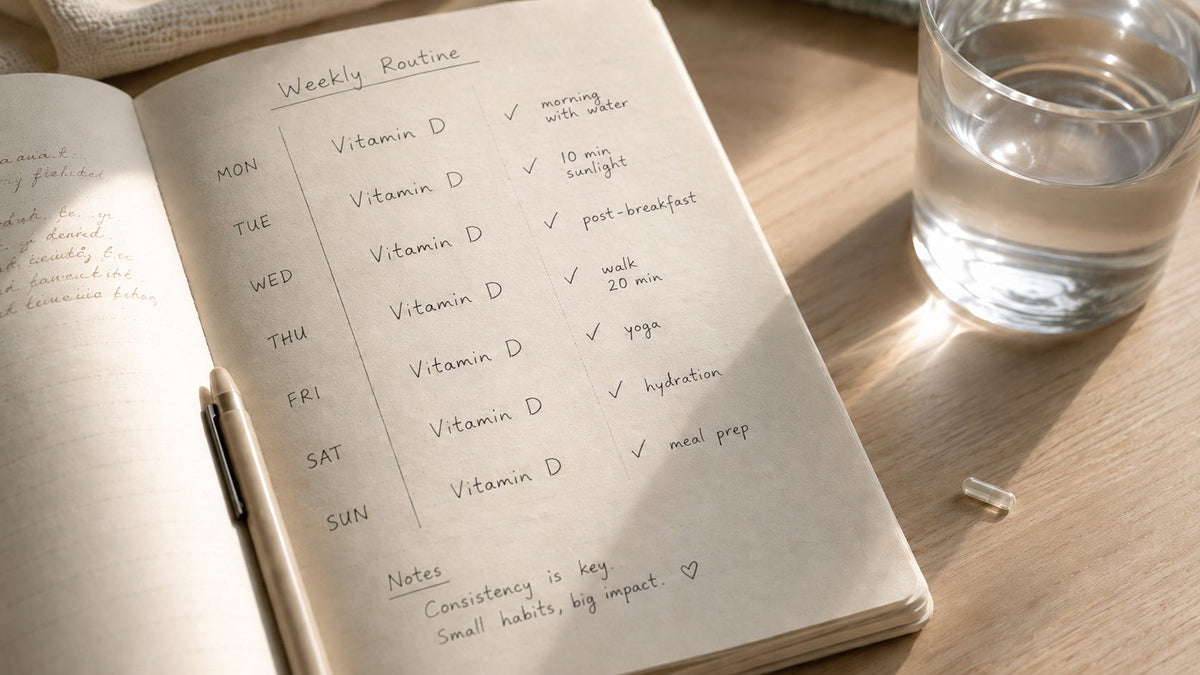 Weekly Routine
MON Vitamin D ✓ morning
with water
TUE Vitamin D ✓ 10 min
sunlight
WED Vitamin D ✓ post-breakfast
THU Vitamin D ✓ walk
20 min
FRI Vitamin D ✓ yoga
SAT Vitamin D ✓ hydration
SUN Vitamin D ✓ meal prep
Notes
Consistency is key.
Small habits, big impact. ♡